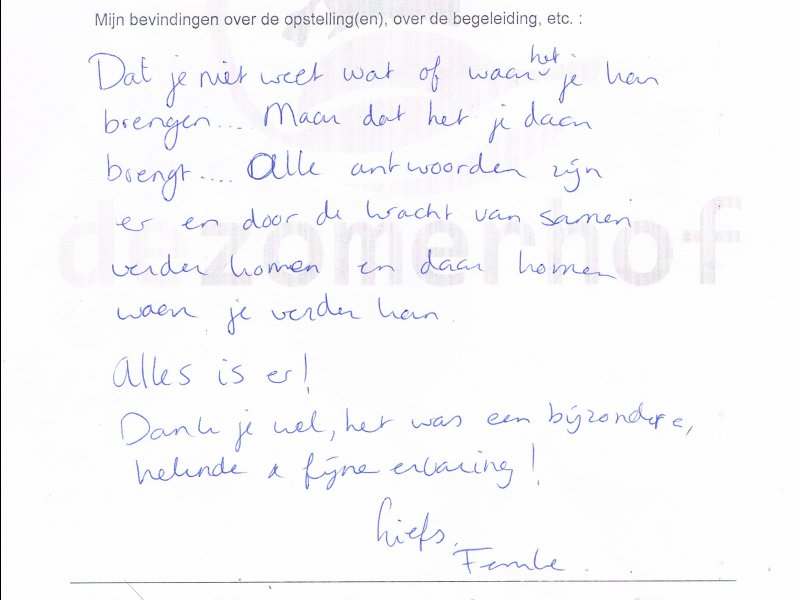 Mijn bevindingen over de opstelling(en), over de begeleiding, etc. :
Dat je niet weet wat of waar het je kan
brengen... Maar dat het je daar
brengt.... Alle antwoorden zijn
er en door de kracht van samen
verder komen en daar komen
waar je verder kan.
Alles is er!
Dank je wel, het was een bijzondere,
helende & fijne ervaring!
Liefs,
Femke
dezomerhof